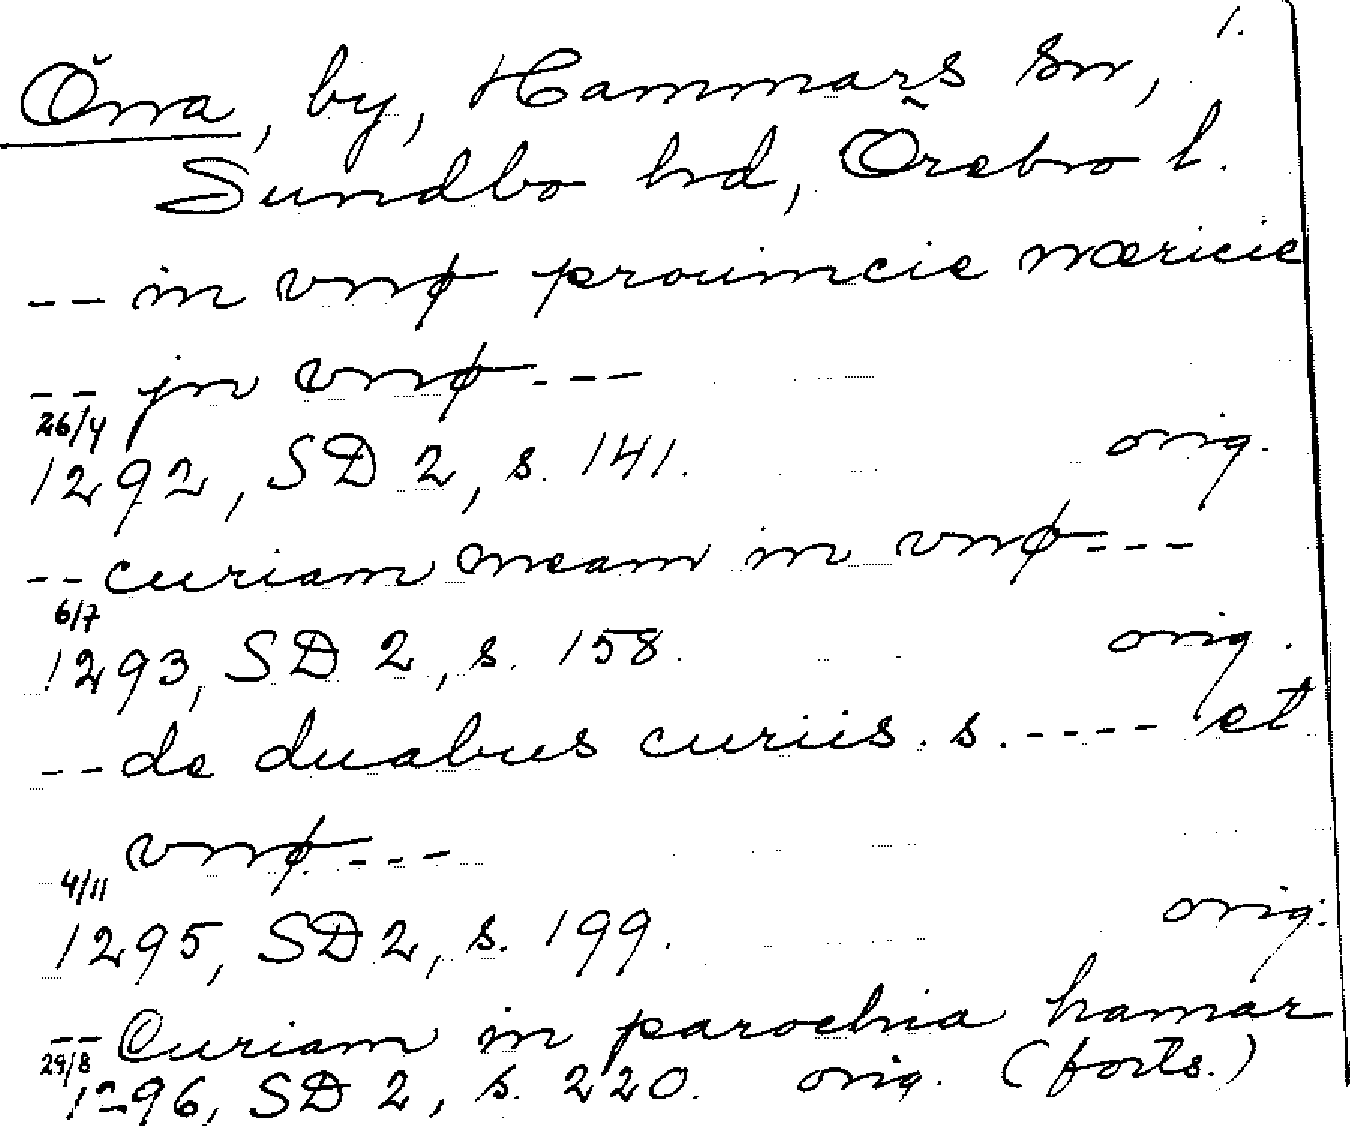 1.
Önna, by, Hammars sn,
Sundbo hd, Örebro l.
-- in vnnø prouincie næricie
-- jn vnnø ---
26/4
1292, SD 2, s. 141. orig.
-- curiam meam in vnnø ---
6/7
1293, SD 2, s. 158. orig.
-- de duabus curiis. s. ---- et
vnnø ---
4/11
1295, SD 2, s. 199. orig.
-- Curiam in parochia hamar
29/8
1296, SD 2, s. 220. orig. (forts.)